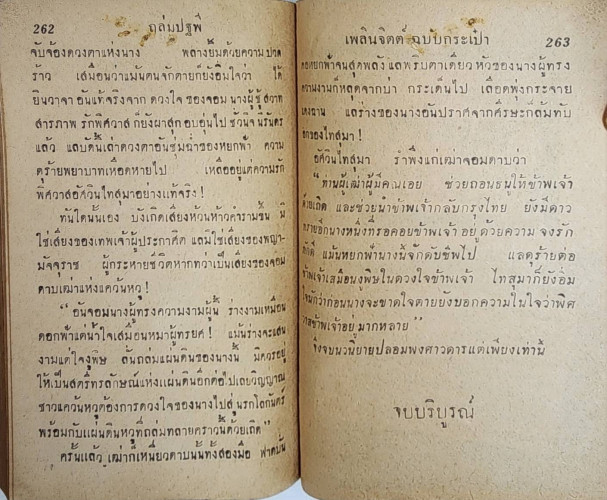 262 ถล่มปฐพี
จับจ้องดวงตาแห่งนาง พลางยิ้มด้วยความปวด
ร้าว เสมือนว่าแม้นตนจักตายก็ยังอิ่มใจว่า ได้
ยินวาจา อันแท้จริงจาก ดวงใจ ของจอม นางผู้สวาท
สารภาพ รักพิศวาส ก็ยังผาสุก อบอุ่นไป ชั่วนิจนิรันดร
แล้ว แลบัดนี้เล่าดวงตาอันชุ่มฉ่ำของหยกฟ้า ความ
ดุร้ายพยาบาทเหือดหายไป เหลืออยู่แต่ความรัก
พิศวาสอัศวินไทสุมาอย่างแท้จริง !
ทันใดนั้นเอง บังเกิดเสียงหวั่นห้าวคำรามขึ้น มิ
ใช่เสียงของเทพเจ้าผู้ประกาศิต แลมิใช่เสียงของพญา-
มัจจุราช ผู้กระหายชีวิตหากทว่าเป็นเสียงของจอม
ดาบเฒ่าแห่งแคว้นหวู !
“อันจอมนางผู้ทรงความงามผู้นี้ ร่างงามเหมือน
ดอกฟ้าแต่น้ำใจเสมือนหมาผู้ทรยศ ! แม้นร่างจะแสน
งามแต่ใจงูพิษ ลั่นถล่มแผ่นดินของนางนี้ มิควรอยู่
ให้เป็นสตรีทรลักษณ์แห่งแผ่นดินอีกต่อไปเลยวิญญาณ
ชาวแคว้นหวูต้องการดวงใจของนางไปสู่นรกโลกันตร์
พร้อมกับแผ่นดินหวูที่ถล่มทลายคราวนี้ด้วยเถิด”
ครั้นแล้ว เฒ่าก็เหนี่ยวดาบนั้นทั้งสองมือ ฟาดฟัน
เพลินจิตต์ ฉบับกระเป๋า 263
คอหยกฟ้าจนสุดพลัง แลพริบตาเดียว หัวของนางผู้ทรง
ความงามก็หลุดจากบ่า กระเด็นไป เลือดพุ่งกระจาย
แลร่างของนางอันปราศจากศีรษะก็ล้มทับ
อกของไทสุมา !
อัศวินไทสุมา รำพึงแก่เฒ่าจอมดาบว่า
“ท่านผู้เฒ่าผู้มีคุณเอย ช่วยถอนธนูให้ข้าพเจ้า
ด้วยเถิด และช่วยนำข้าพเจ้ากลับกรุงไทย ยังมีดาว
อีกนางหนึ่งที่รอคอยข้าพเจ้าอยู่ ด้วยความ จงรัก
ภักดี แม้นหยกฟ้านางนี้จักดับชีพไป แลดุร้ายต่อ
ข้าพเจ้าเสมือนงูพิษในดวงใจข้าพเจ้า ไทสุมาก็ยังอิ่ม
ใจนักว่าก่อนนางจะขาดใจตายยังบอกความในใจว่าพิศ
วาสข้าพเจ้าอยู่ มากหลาย”
จึงจบนวนิยายปลอมพงศาวดารแต่เพียงเท่านี้
จบบริบูรณ์